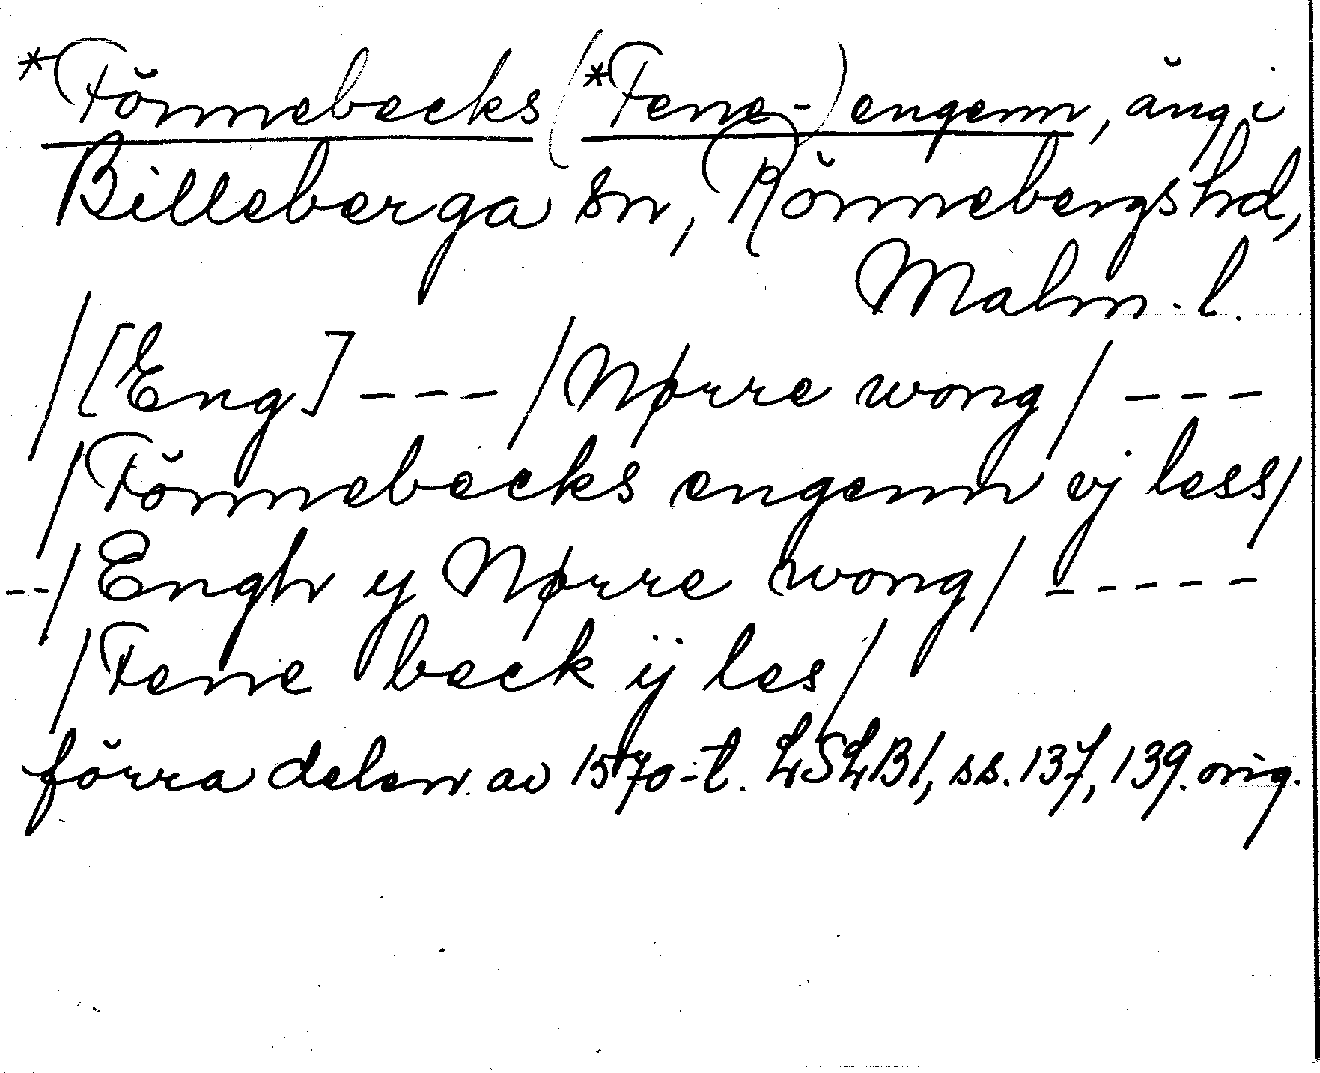 *Fönnebecks (*Fene-) engenn, äng i
Billeberga sn, Rönnebergs hd,
Malm. l.
/[Eng] --- /Nørre wong/ ---
/Fönnebecks engenn vj less/
--/Engh y Nørre wong/ -----
/Fene beck ij les/
förra delen av 1570-t. LSLB1, ss. 137, 139. orig.